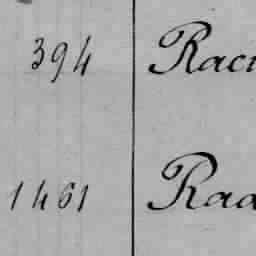 394 Raci
1461 Raa